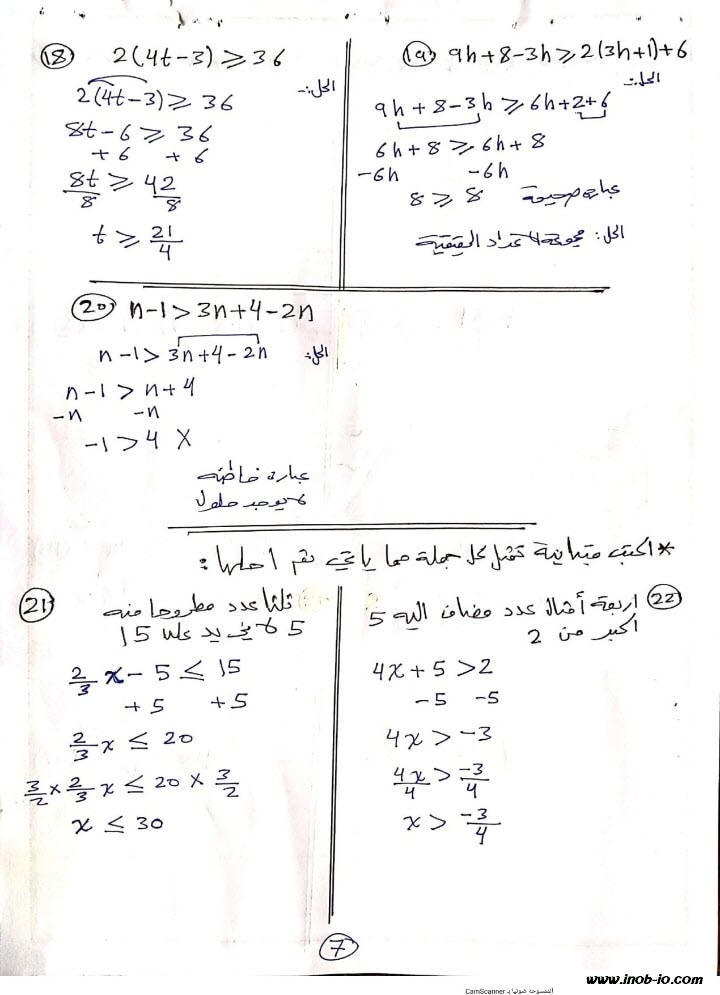 18) 2(4t-3) ≥ 36
الحل:-
2(4t-3) ≥ 36
8t-6 ≥ 36
+6 +6
8t/8 ≥ 42/8
t ≥ 21/4
19) 9h+8-3h ≥ 2(3h+1)+6
الحل:-
9h+8-3h ≥ 6h+2+6
6h+8 ≥ 6h+8
-6h -6h
8 ≥ 8 عبارة صحيحة
الحل: مجموعة الاعداد الحقيقية
20) n-1 > 3n+4-2n
الحل:-
n-1 > 3n+4-2n
n-1 > n+4
-n -n
-1 > 4 X
عبارة خاطئة
لا يوجد حلول
* اكتب متباينة تمثل كل جملة مما يأتي ثم احلها:
21) ثلثا عدد مطروحا منه
5 لا يزيد على 15
2/3 x - 5 ≤ 15
+5 +5
2/3 x ≤ 20
3/2 × 2/3 x ≤ 20 × 3/2
x ≤ 30
22) اربعة أمثال عدد مضاف اليه 5
اكبر من 2
4x+5 > 2
-5 -5
4x > -3
4x/4 > -3/4
x > -3/4
7
www.inob-io.com
الممسوحة ضوئيا بـ CamScanner